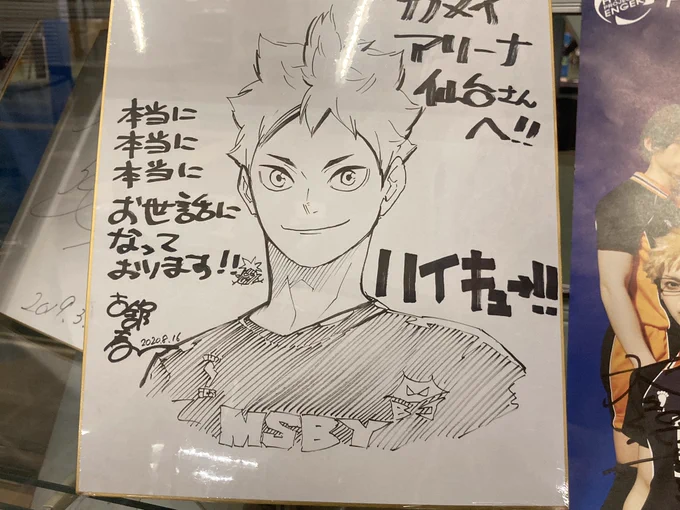 カメイ
アリーナ
仙台さん
へ!!
本当に
本当に
本当に
お世話に
なって
おります!!
ハイキュー!!
古舘
春一
2020.8.16
MSBY
2019.3
ENGER